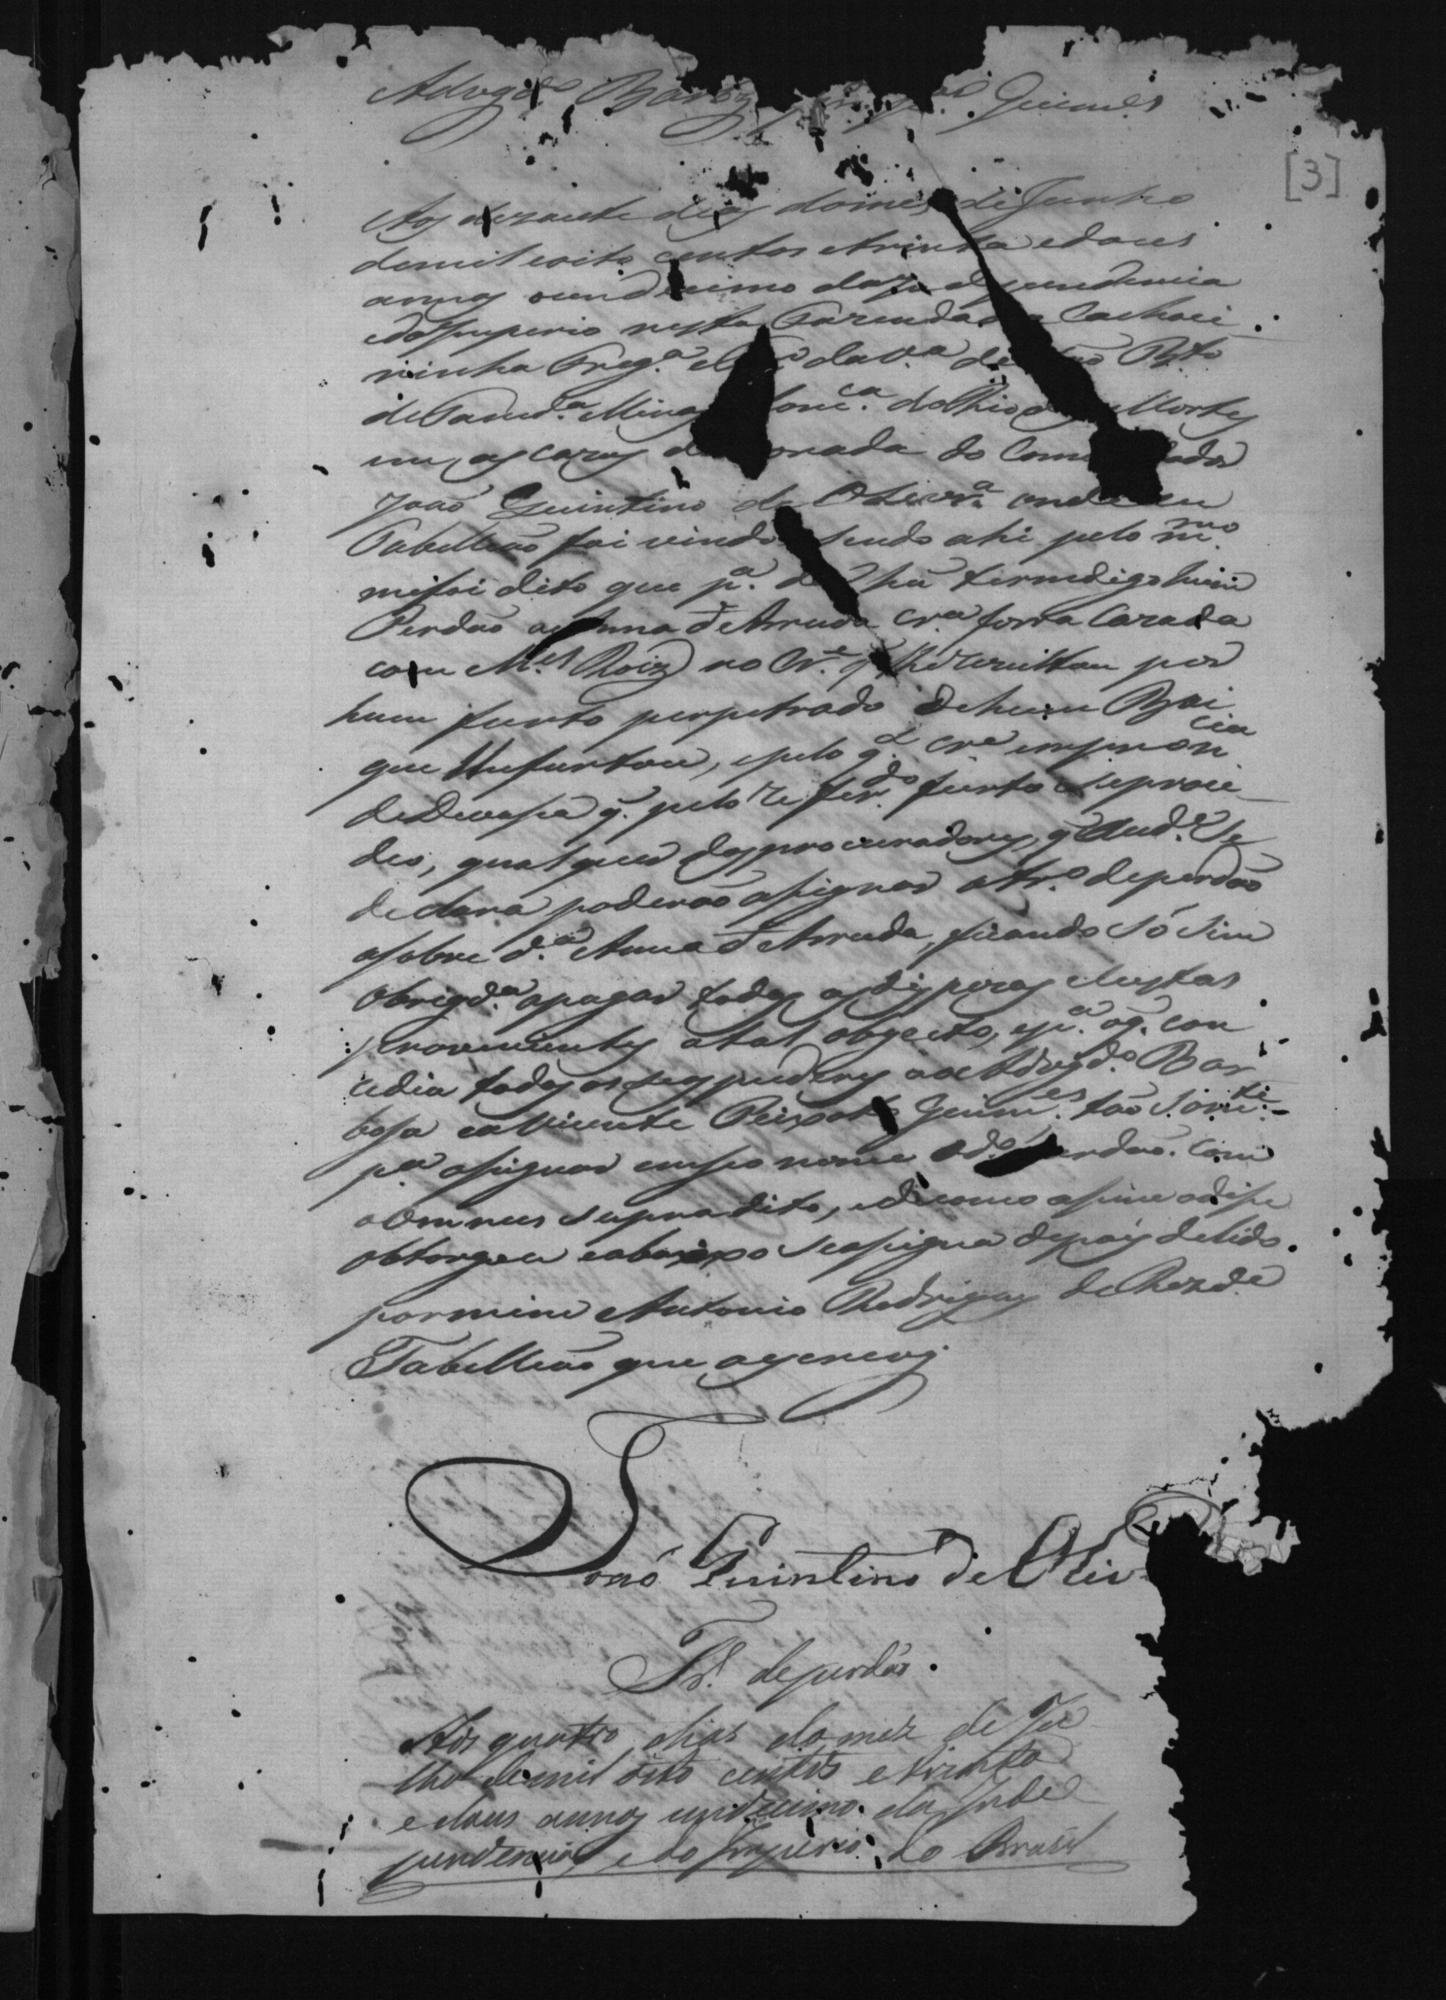 [3]
Aos dezacete dias domes de Junho
demil eoito centos etrinta edous
annos undecimo da Independencia
edo Imperio nesta Fazenda da Cachoei
rinha Freg.ª da V.ª de São
de Minas Com.ca do Rio das Mortes
em as cazas de morada do Comendador
João Quintino de Oliver.ª onde eu
Tabelleão foi vindo sendo ahi pelo m.mo
mefoi dito que p.ª termo digo hum
Perdão a Anna de Arruda cr.ª forra Cazada
com M.el Roiz no Cr.e q. por
hum furto perpetrado de hum
que lhe furtou, epelo q.l
deDevaça q. pelo refer.do furto seproce
deo, qualquer dos procuradores, q. aud.e se
declara poderão asignar otr.o deperdão
asobre d.ª Anna de Arruda, ficando só sim
obrigd.ª apagar todas as dispezas e custas
provenientes atal objecto, ep.ª oq. con
cedia todos os seos puderes ao Advogd.o Bar
boza ea Vicente Peixoto Guim.es tão som.te
p.ª asignar emseo nome od.o perdão. Com
supradito, edecomo asim odise
obtorgou eabaixo seasigna depois delido
pormim Antonio Rodrigues de Rezd.e
Tabelleão que aescrevy
João Quintino de Oliv
Tr.o deperdão.
Aos quatro dias do mez de Ju
lho demil oito centos e trinta
e dous annos undecimo da Inde
pendencia, e do Imperio do Brasil